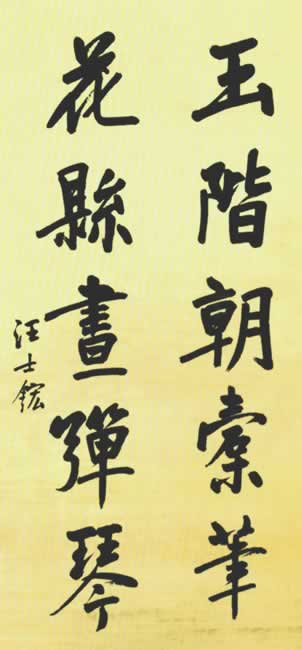 玉階朝橐筆
花縣晝彈琴
汪士鋐